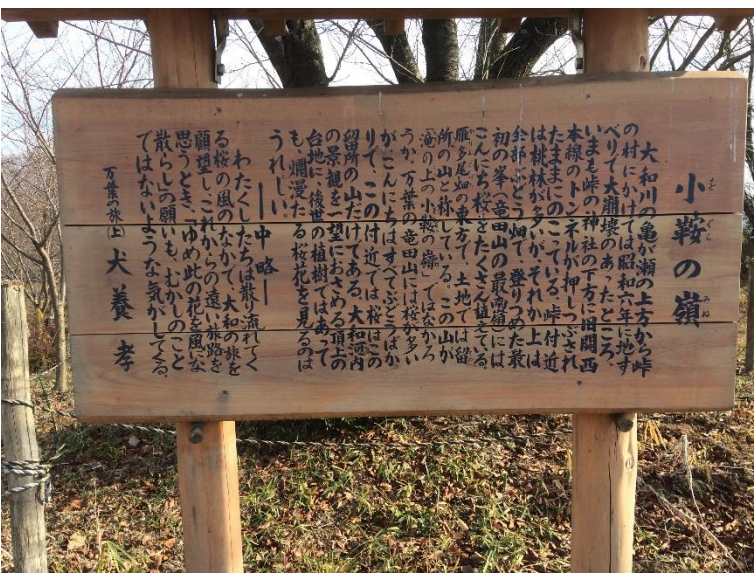 小鞍の嶺
をぐら みね
大和川の亀が瀬の上方から峠
の村にかけては昭和六年に地す
べりで大崩壊のあったところ、
いまも峠の神社の下方に旧関西
本線のトンネルが押しつぶされ
たままにのこっている。峠付近
は桃林が多いが、それから上は
全部ぶどう畑で、登りつめた最
初の峯、竜田山の最南嶺には
こんにち桜をたくさん植えてる。
雁多尾畑の東方で、土地では留
所の山と称している。この山が
「滝の上の小鞍の嶺」ではなかろ
うか。万葉の竜田山には桜が多い
がこんにちはすべてぶどうばか
りで、この付近では桜はこの
留所の山だけである。大和河内
の景観を一望におさめる頂上の
台地に、後世の植樹ではあって
も、爛漫たる桜花を見るのは
うれしい。
――中略――
わたくしたちは散り流れてく
る桜の風のなかで、大和の旅を
願望し、これからの遠い旅路を
思うとき、「ゆめ此の花を風にな
散らし」の願いも、むかしのこと
ではないような気がしてくる。
万葉の旅(上) 犬養 孝